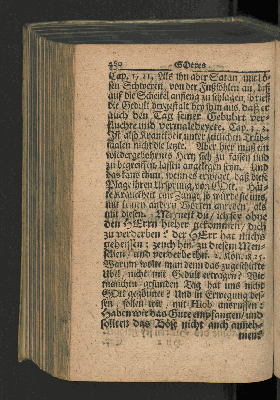 480 GOttes
Cap. 1, 21. Als ihn aber Satan mit bö-
sen Schweren, von der Fußsohlen an, biß
auf die Scheitel anfieng zu schlagen, strieß
die Gedult dergestalt bey ihm aus, daß er
auch den Tag seiner Geburt ver-
fluchte und vermaledeyete. Cap. 3, 2.
Ist also Kranckheit unter zeitlichen Trüb-
salen nicht die letzte. Aber hier muß ein
wiedergebohrnes Hertz sich zu fassen und
zu begreiffen, lassen angelegen seyn. Und
das kans thun, wenn es erweget, daß diese
Plage ihren Ursprung von GOtt. Hät-
te Kranckheit eine Zunge, so würde sie uns,
mit keinen andern Worten anreden, als
mit diesen: Meynest du, ich sey ohne
den HErrn hieher gekommen, dich
zu verderben? der HErr hat michs
geheissen: zeuch hin zu diesem Men-
schen, und verderbe ihn. 2. Kön. 18, 25.
Warum wolte man denn das zugeschickte
Ubel, nicht mit Gedult ertragen? Wie
manchen gesunden Tag hat uns nicht
GOtt gegönnet? Und in Erwegung des-
sen, sollen wir mit Hiob ausruffen:
Haben wir das Gute empfangen, und
sollten das Böse nicht auch anneh-
men?